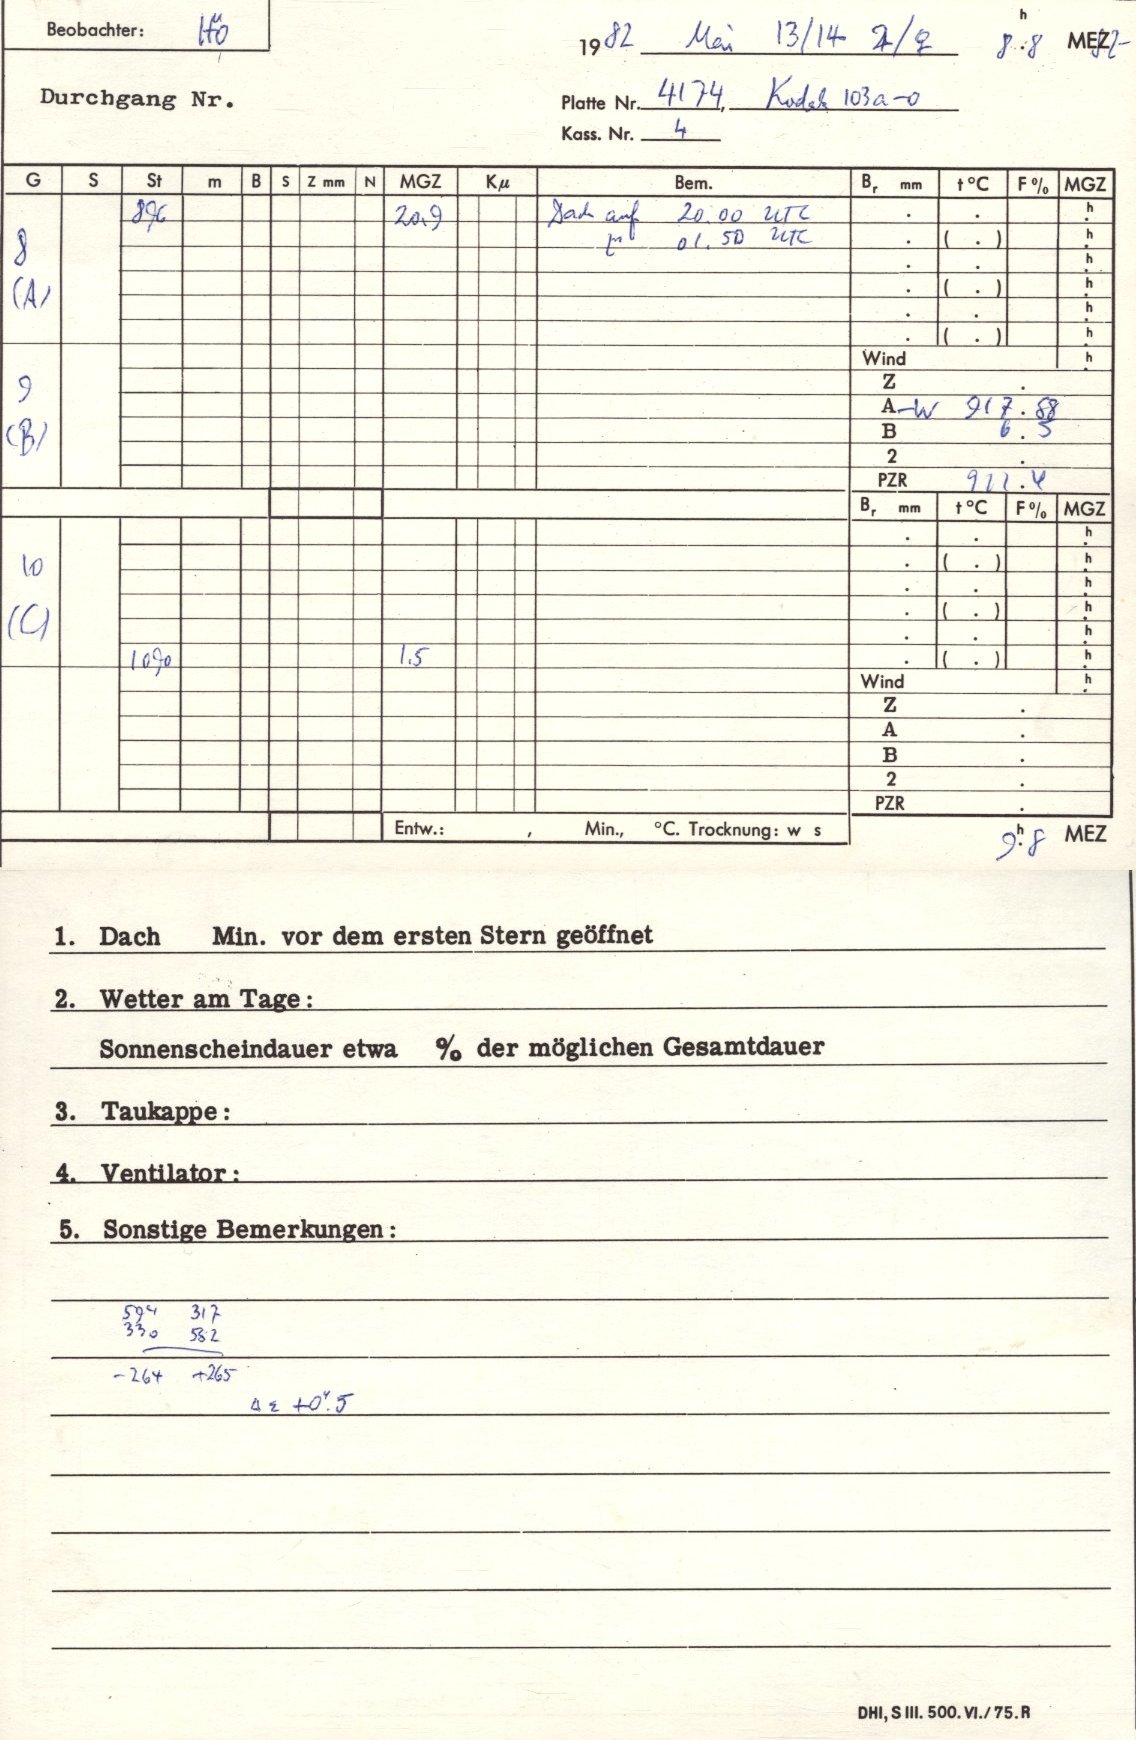 Beobachter: Hö
1982 Mai 13/14 8.8 h MEZ
Durchgang Nr.
Platte Nr. 4174, Kodak 103a-o
Kass. Nr. 4
G S St m B S Z mm N MGZ Kμ Bem. Br mm t °C F % MGZ
896 20.9 Dach auf 20.00 UTC . . h
8 zu 01.50 UTC . ( . ) h
. . h
(A) . ( . ) h
. . h
. ( . ) h
Wind h
9 Z .
A-W 917.88
(B) B 6.5
2 .
PZR
Br mm t °C F % MGZ
. . h
10 . ( . ) h
. . h
(C) . ( . ) h
. . h
1090 1.5 . ( . ) h
Wind h
Z .
A .
B .
2 .
PZR .
Entw.: , Min., °C. Trocknung: w s
9.8 h MEZ
1. Dach Min. vor dem ersten Stern geöffnet
2. Wetter am Tage:
Sonnenscheindauer etwa % der möglichen Gesamtdauer
3. Taukappe:
4. Ventilator:
5. Sonstige Bemerkungen:
594 317
330 582
-264 +265
+0".5
DHI, S III. 500. VI./75. R